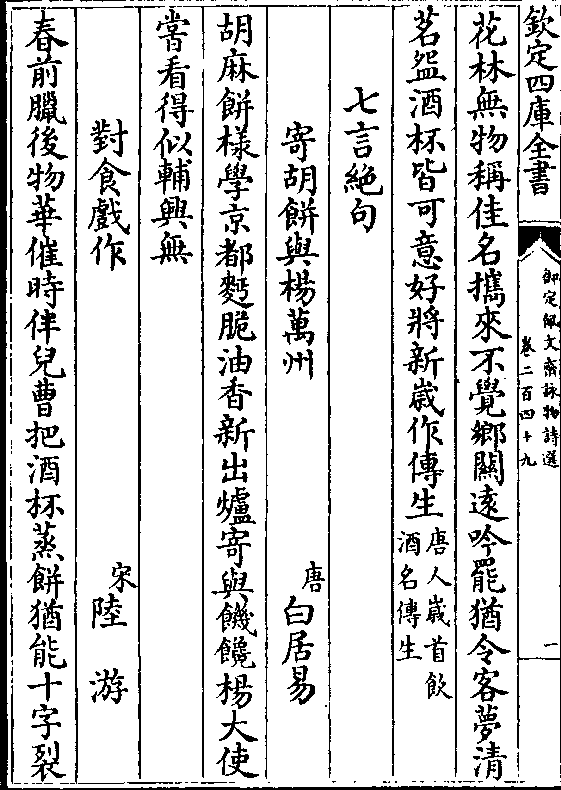 欽定四庫全書
御定佩文齋詠物詩選
卷二百四十九
一
花林無物稱佳名攜來不覺鄉關遠吟罷猶令客夢清
茗盌酒杯皆可意好將新歲作傳生
唐人歲首飲
酒名傳生
七言絶句
寄胡餅與楊萬州
唐
白居易
胡麻餅様學京都麫脆油香新出爐寄與饑饞楊大使
嘗看得似輔興無
對食戲作
宋
陸游
春前臘後物華催時伴兒曹把酒杯蒸餅猶能十字裂